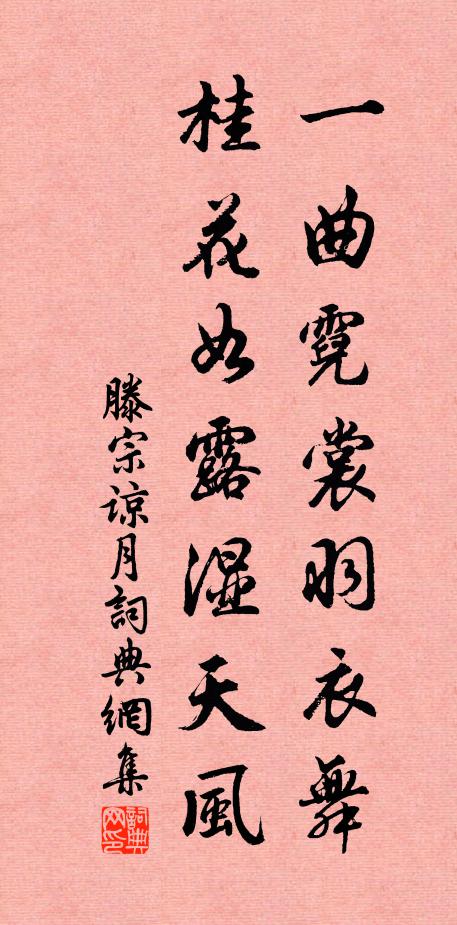 一曲霓裳羽衣舞
桂花如露湿天風
滕宗諒月詞典網集
詞典网印